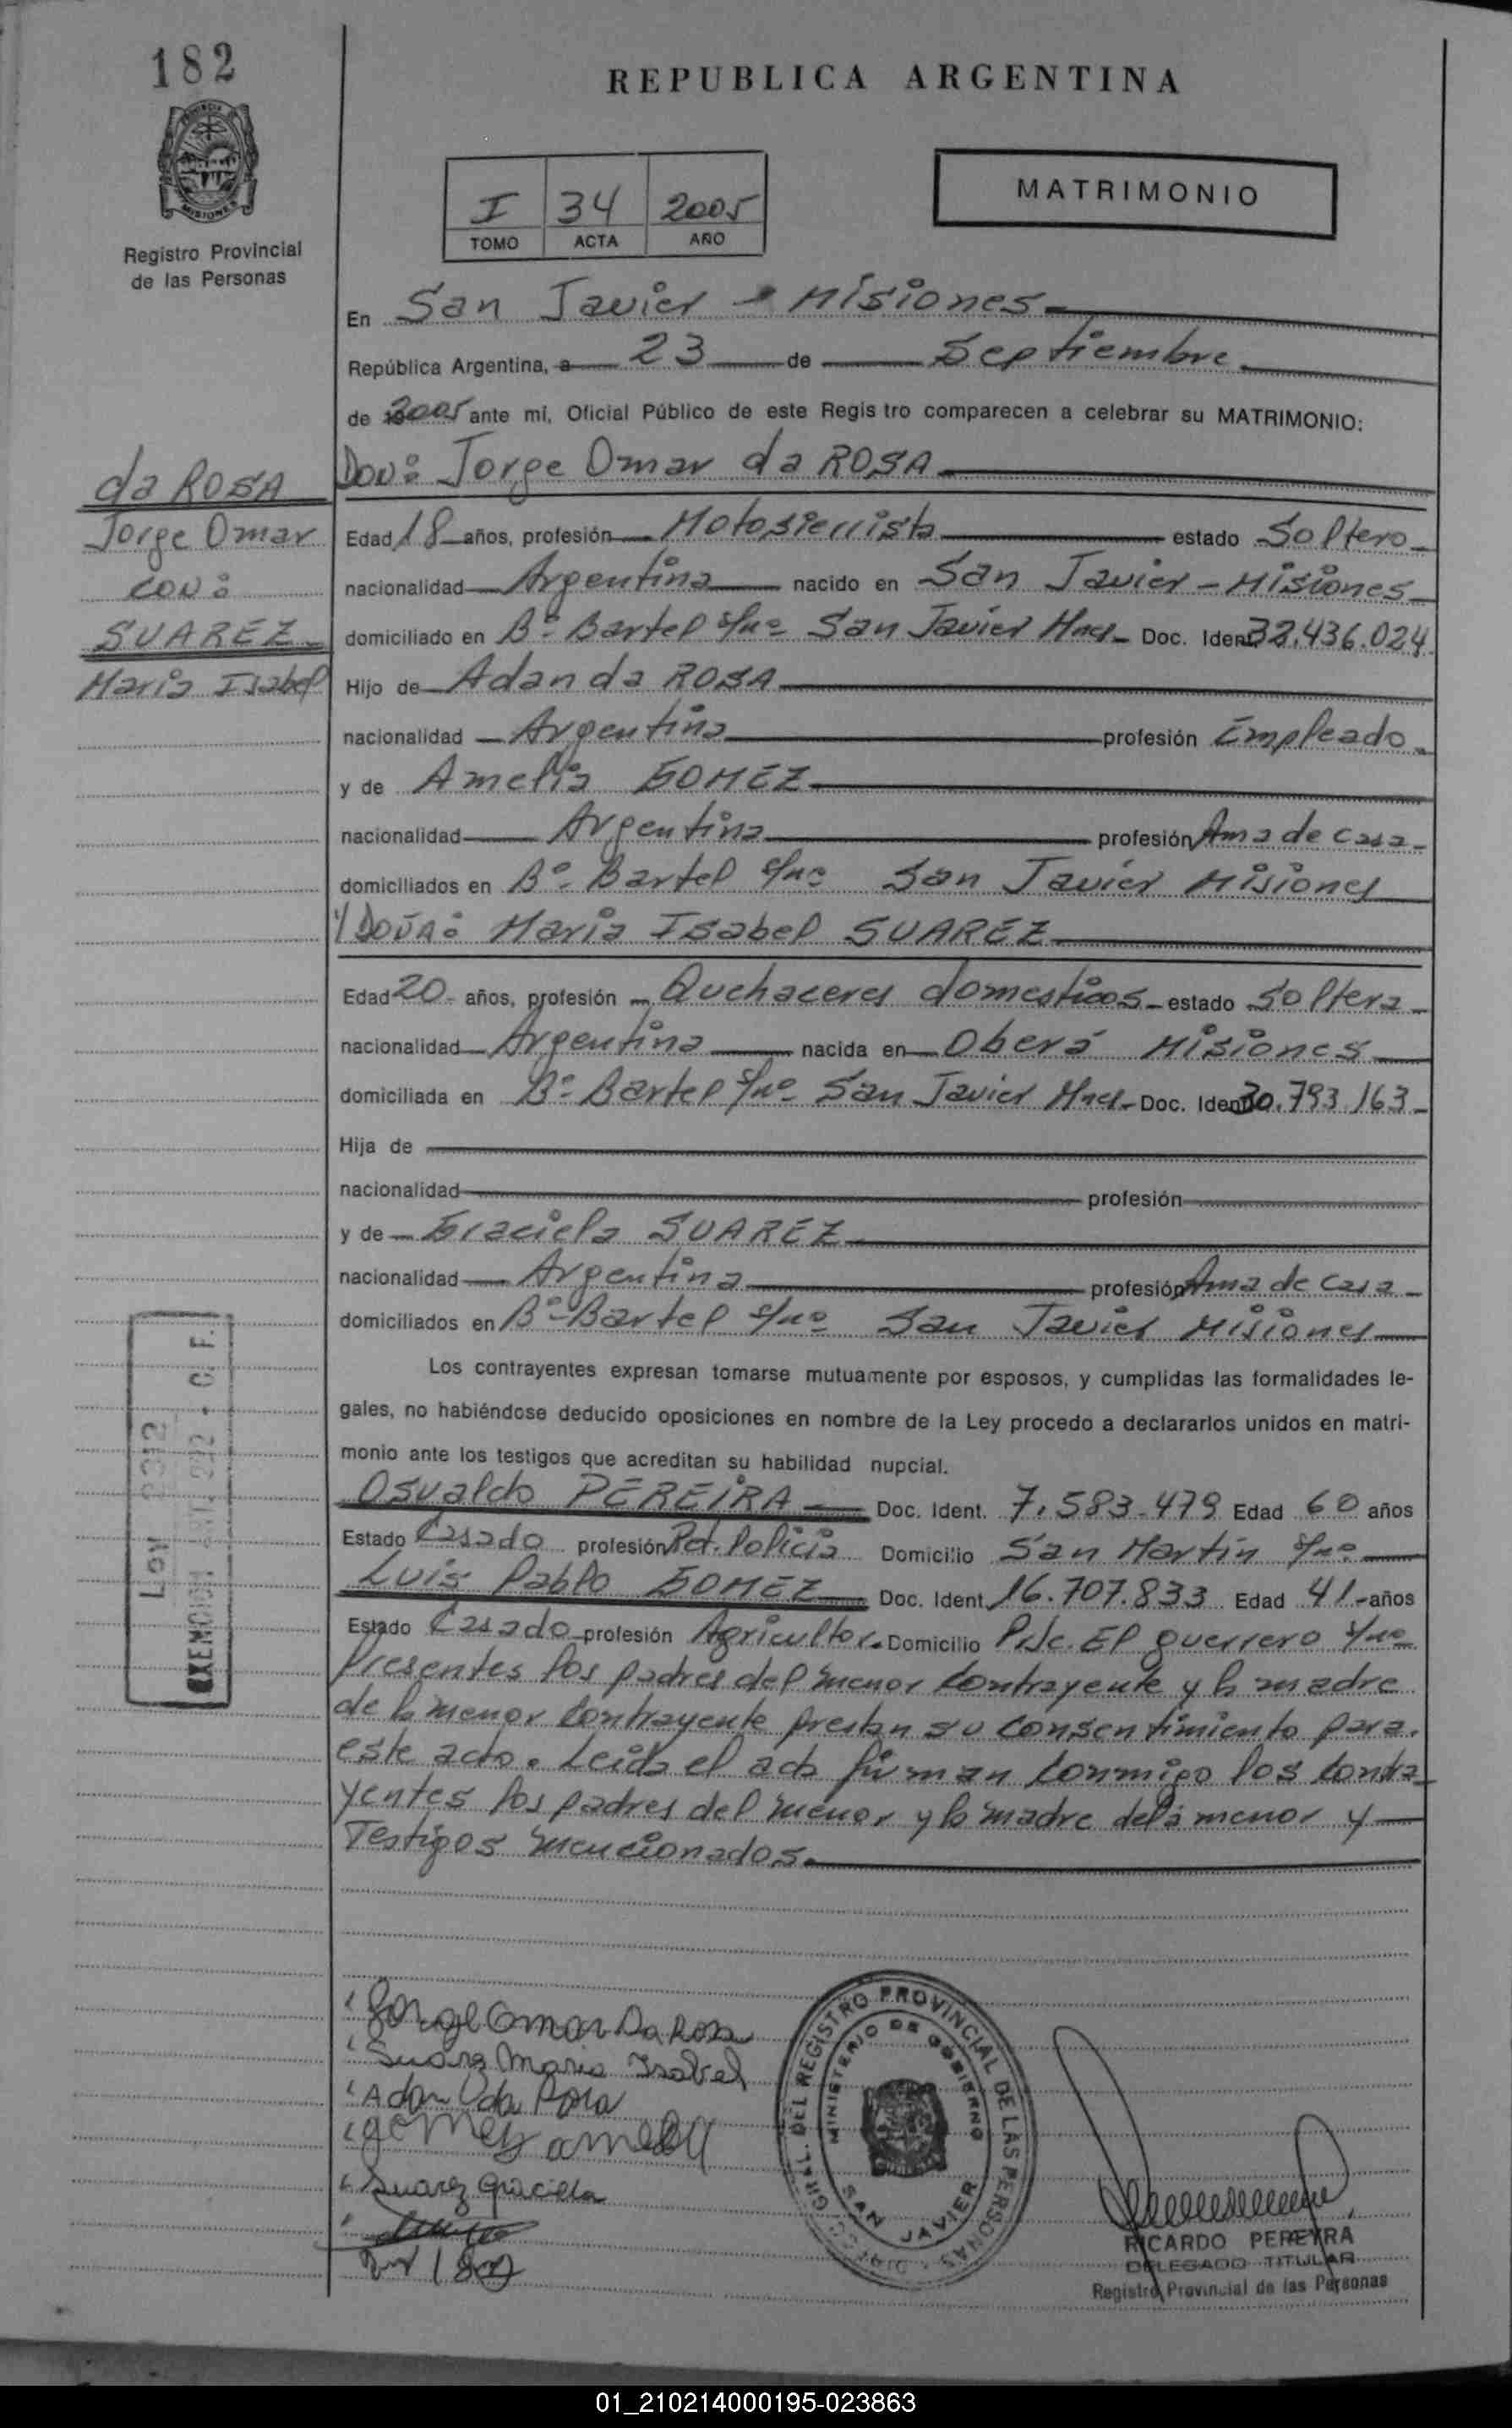 182
REPUBLICA ARGENTINA
MISIONES
Registro Provincial
de las Personas
I 34 2005
TOMO ACTA AÑO
MATRIMONIO
En San Javier - Misiones
República Argentina, a 23 de Septiembre
de 2005 ante mí, Oficial Público de este Regis tro comparecen a celebrar su MATRIMONIO:
da ROSA
Jorge Omar
CON:
SUAREZ
Maria Isabel
DON: Jorge Omar da ROSA
Edad 18 años, profesión Motosierrista estado Soltero
nacionalidad Argentina nacido en San Javier - Misiones
domiciliado en Bº Bartel s/nº San Javier Mnes Doc. Ident. 32.436.024
Hijo de Adan da ROSA
nacionalidad Argentina profesión Empleado
y de Amelia GOMEZ
nacionalidad Argentina profesión Ama de casa
domiciliados en Bº Bartel s/nº San Javier Misiones
Y DOÑA: Maria Isabel SUAREZ
Edad 20 años, profesión Quehaceres domesticos estado Soltera
nacionalidad Argentina nacida en Oberá Misiones
domiciliada en Bº Bartel s/nº San Javier Mnes Doc. Ident. 30.793.163
Hija de
nacionalidad profesión
y de Graciela SUAREZ
nacionalidad Argentina profesión Ama de casa
domiciliados en Bº Bartel s/nº San Javier Misiones
Los contrayentes expresan tomarse mutuamente por esposos, y cumplidas las formalidades le-
gales, no habiéndose deducido oposiciones en nombre de la Ley procedo a declararlos unidos en matri-
monio ante los testigos que acreditan su habilidad nupcial.
Osvaldo PEREIRA Doc. Ident. 7.583.479 Edad 60 años
Estado Casado profesión Ret. Policia Domicilio San Martin s/nº
Luis Pablo GOMEZ Doc. Ident. 16.707.833 Edad 41 años
Estado Casado profesión Agricultor Domicilio Pje. El guerrero s/nº
Presentes los padres del menor contrayente y la madre
de la menor contrayente prestan su consentimiento para
este acto. Leida el acta firman conmigo los contra
yentes los padres del menor y la madre de la menor y
Testigos mencionados.
Ley
EXENCION
Jorge Omar Da Rosa
Suarez Maria Isabel
Adan Da Rosa
Gomez Amelia
Suarez Graciela
GRAL. DEL REGISTRO PROVINCIAL DE LAS PERSONAS
MINISTERIO DE GOBIERNO
SAN JAVIER
RICARDO PEREYRA
DELEGADO TITULAR
Registro Provincial de las Personas
01_210214000195-023863